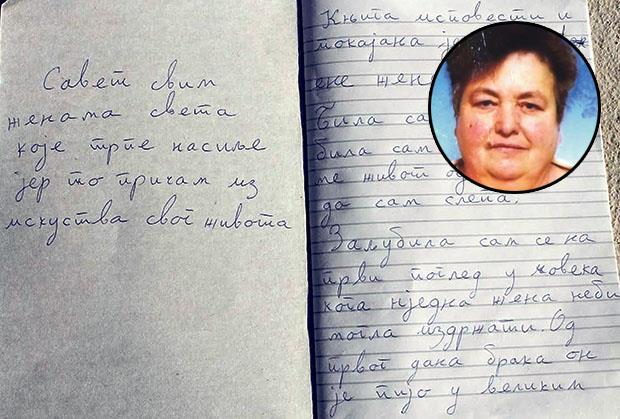 Савет свим
женама света
које трпе насиље
јер то причам из
искуства свог живота
Књига исповести и
покајања је
ене жен
Била са
била сам
ме живот од
да сам слепа.
Заљубила сам се на
први поглед у човека
кога ниједна жена неби
могла издржати. Од
првог дана брака он
је пијо у великим